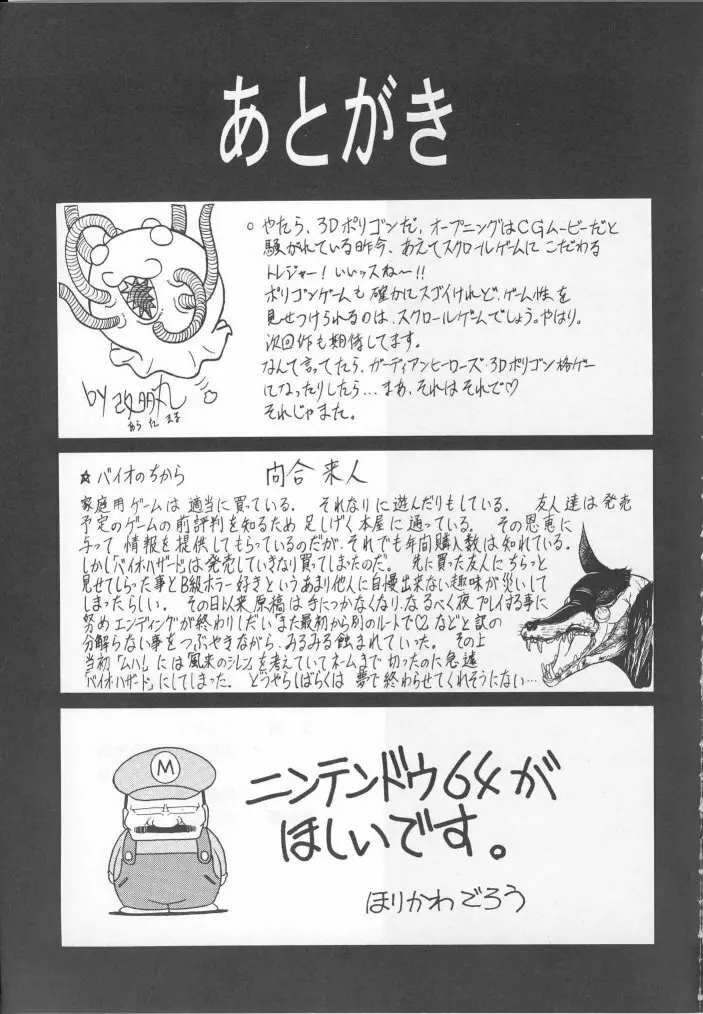 あとがき
○ やたら、3Dポリゴンだ、オープニングはCGムービーだと
騒がれている昨今、あえてスクロールゲームに こだわる
トレジャー！いいッスね〜!!
ポリゴンゲームも確かにスゴイけれど、ゲーム性を
見せつけられるのは、スクロールゲームでしょう。やはり。
次回作も期待してます。
なんて言ってたら、ガーディアンヒーローズ・3Dポリゴン格ゲー
になったりしたら…まあ、それはそれで♡
それじゃまた。
by
☆バイオのちから 向合来人
家庭用ゲームは適当に買っている。 それなりに遊んだりもしている。 友人達は発売
予定のゲームの前評判を知るため足しげく本屋に通っている。 その恩恵に
与って情報を提供してもらっているのだが、それでも年間購入数は知れている。
しかし「バイオハザード」は発売していきなり買ってしまったのだ。 先に買った友人にちらっと
見せてしらった事とB級ホラー好きというあまり他人に自慢出来ない趣味が災いして
しまったらしい。 その日以来原稿は手につかなくなり、なるべく夜プレイする事に
努めエンディングが終わりしだい「また最初から別のルートで♡」などと訳の
分解らない事をつぶやきながら、みるみる蝕まれていった。 その上
当初「ムハ!」には「風来のシレン」を考えていてネームまで切ったのに急遽
「バイオハザード」にしてしまった。 どうやらしばらくは夢で終わらせてくれそうにない…
M
ニンテンドウ64が
ほしいです。
ほりかわごろう